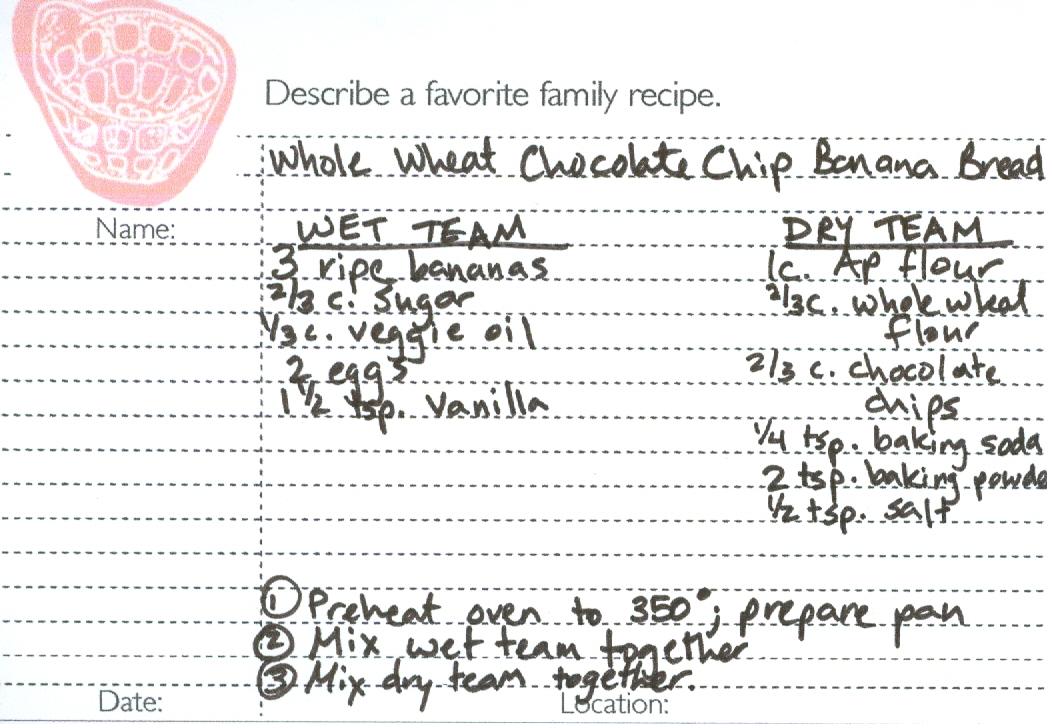 Describe a favorite family recipe.
Whole Wheat Chocolate Chip Banana Bread
Name:
WET TEAM
3 ripe bananas
2/3 c. sugar
1/3 c. veggie oil
2 eggs
1 1/2 tsp. vanilla
DRY TEAM
1c. AP flour
2/3c. whole wheat
flour
2/3 c. chocolate
chips
1/4 tsp. baking soda
2 tsp. baking powde
1/2 tsp. salt
① Preheat oven to 350°; prepare pan
② Mix wet team together
③ Mix dry team together.
Date:
Location: